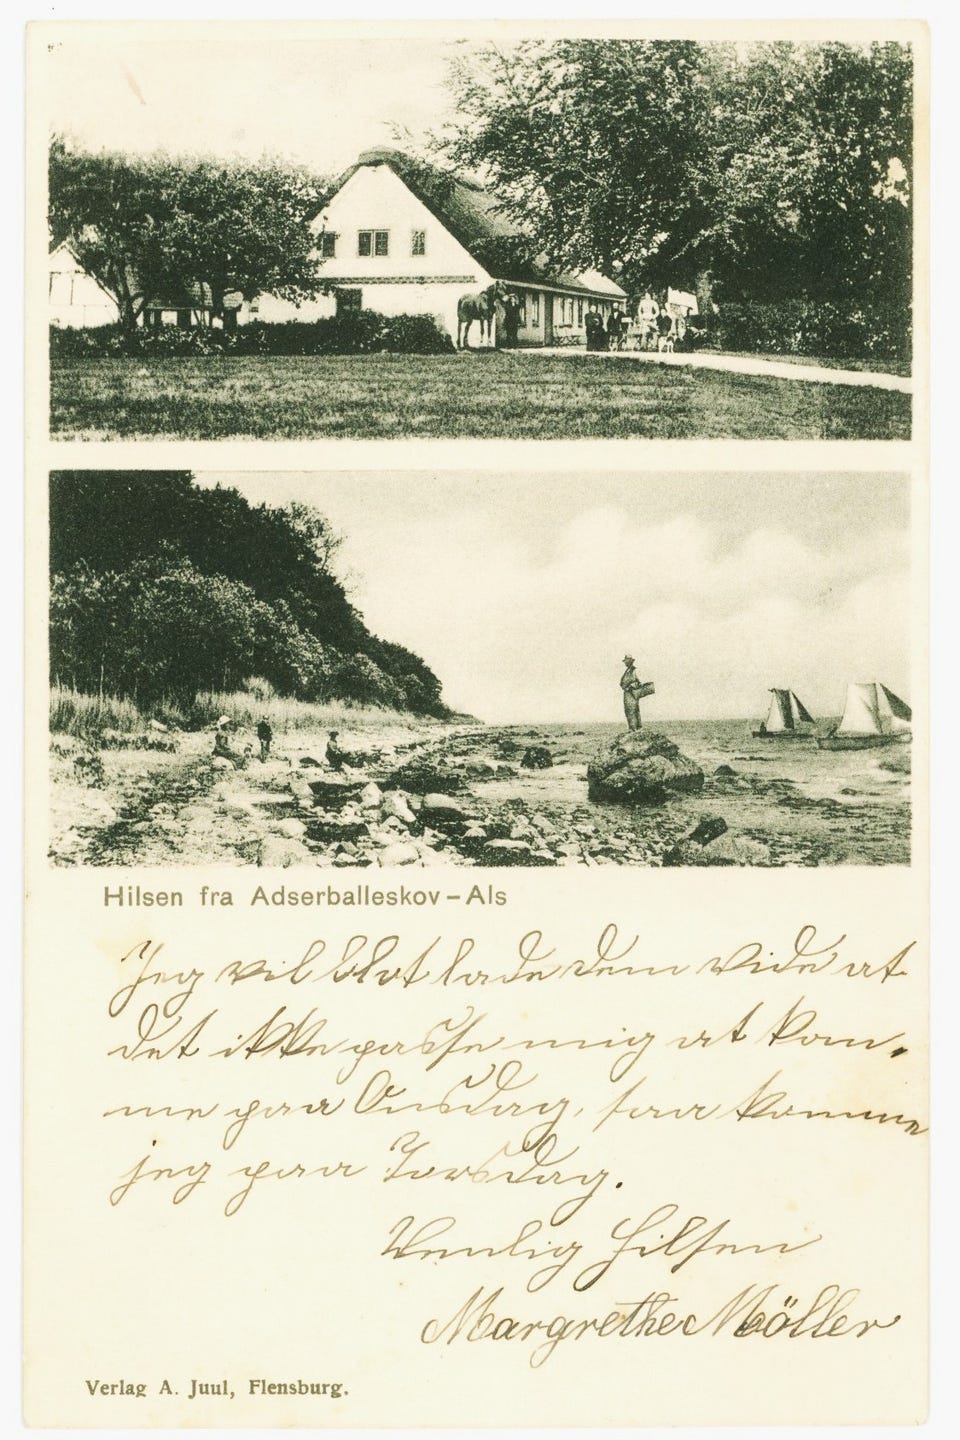 Hilsen fra Adserballeskov – Als
Jeg vil blot lade dem vide at
det ikke passe mig at kom,
me paa Onsdag, saa komme
jeg paa Torsdag.
Venlig Hilsen
Margrethe Möller
Verlag A. Juul, Flensburg.